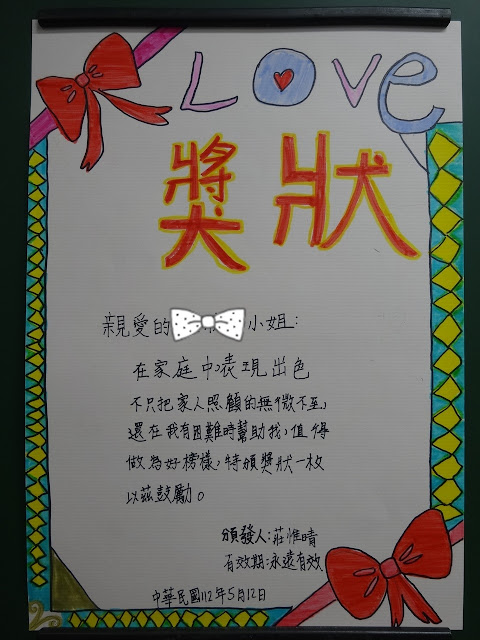 LOVE
獎狀
親愛的 小姐:
在家庭中表現出色
不只把家人照顧的無微不至,
還在我有困難時幫助我,值得
做為好榜樣,特頒獎狀一枚
以茲鼓勵。
頒發人:莊惟晴
有效期:永遠有效
中華民國112年5月12日